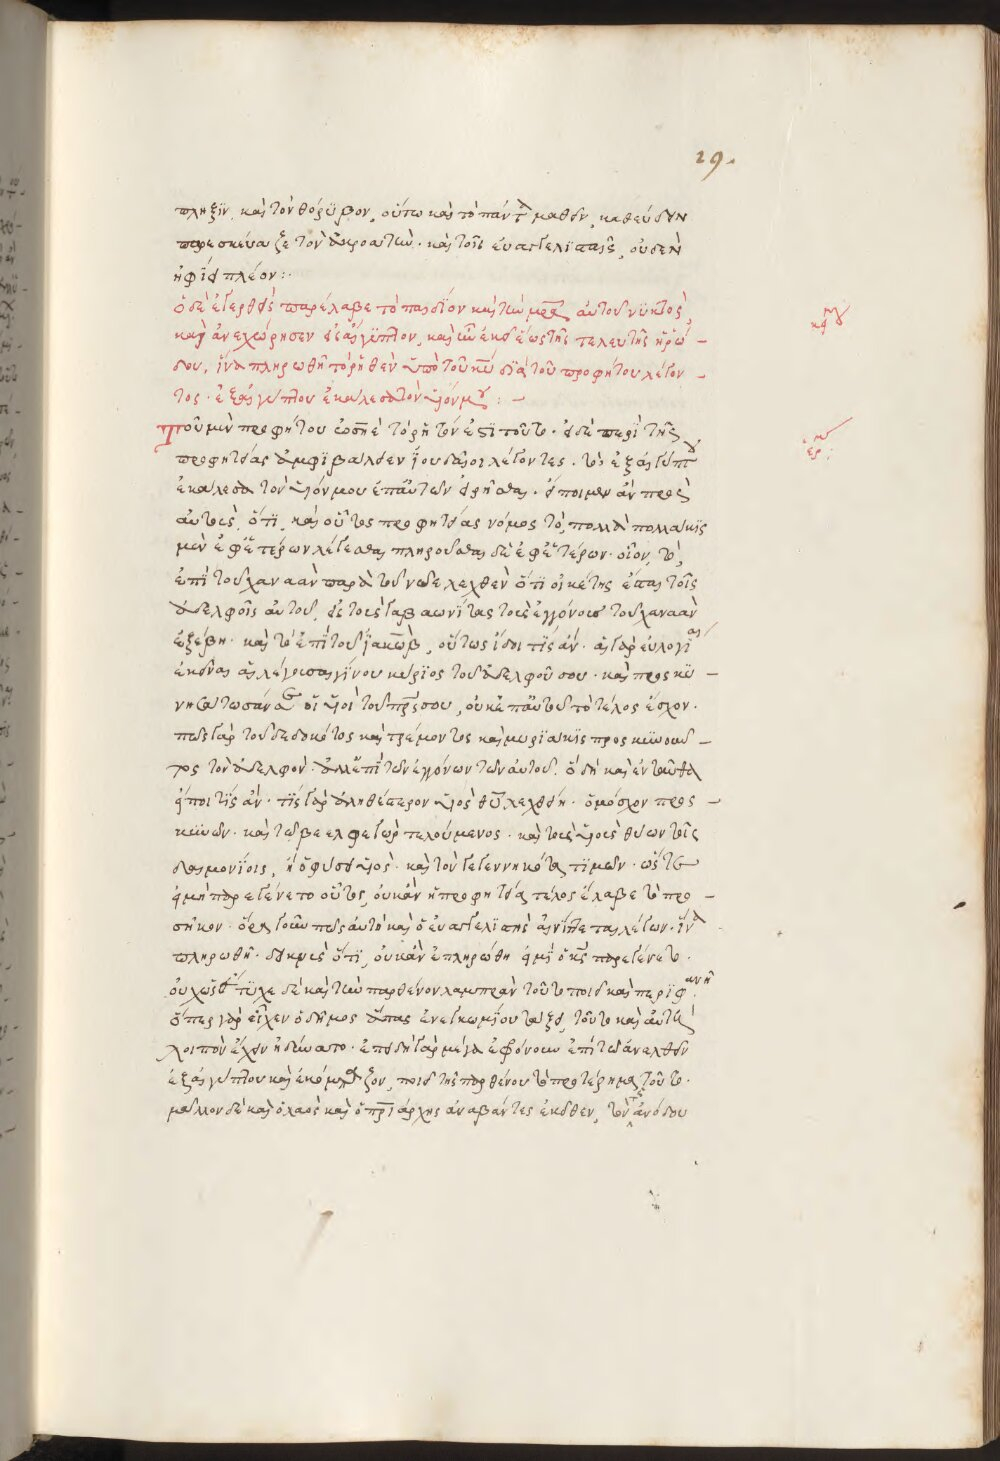 29.
πληξιν, καὶ τὸν θόρυβον, οὕτω καὶ τὸ πάντα μαθεῖν, καθεύδειν
παρεσκεύαζε τὸν ἀκροατὴν. καίτοι εὐαγγελισταῖς, οὐδὲν
ἠφίει πλέον:
ὁ δὲ ἐγερθεὶς παρέλαβε τὸ παιδίον καὶ τὴν μρα αὐτοῦ νυκτὸς,
καὶ ἀνεχώρησεν εἰς αἴγυπτον, καὶ ἦν ἐκεῖ ἕως τῆς τελευτῆς ἡρώ-
δου. ἵνα πληρωθῇ τὸ ῥηθὲν ὑπὸ τοῦ κυ διὰ τοῦ προφήτου λέγον-
τος. ἐξ αἰγύπτου ἐκάλεσα τὸν υἱόν μου: -
Τοῦ μὲν προφήτου ὡσηὲ τὸ ῥητόν ἐστι τοῦτο. εἰ δὲ περὶ τῆς
προφητείας ἀμφιβάλλειεν ἰουδαῖοι λέγοντες. τὸ ἐξ αἰγύπτου
ἐκάλεσα τὸν υἱόν μου ἐπ' αὐτῶν εἰρῆσθαι. εἴποιμεν ἂν πρὸς
αὐτοὺς, ὅτι, καὶ οὗτος προφητείας νόμος τὸ, πολλὰ πολλάκις
μὲν ἐφ' ἑτέρων λέγεσθαι πληροῦσθαι δὲ ἐφ' ἑτέρων. οἷον, τὸ,
ἐπὶ τοῦ χαναὰν παρὰ τοῦ νῶε λεχθὲν ὅτι οἰκέτης ἔσται τοῖς
ἀδελφοῖς αὐτοῦ, εἰς τοὺς γαβαωνίτας τοὺς ἐγγόνους τοῦ χαναὰν
ἐξέβη. καὶ τὸ ἐπὶ τοῦ ἰακὼβ, οὕτως ἴδοι τίς ἄν. αἱ γὰρ εὐλογίαι
ἐκεῖναι αἱ λέγουσαι γίνου κύριος τοῦ ἀδελφοῦ σου. καὶ προσκυ-
νησάτωσάν σε οἱ υἱοὶ τοῦ πρς σου, οὐκ ἐπ' αὐτοῦ τὸ τέλος ἔσχον.
πῶς γὰρ τοῦ δεδοικότος καὶ τρέμοντος καὶ μυριάκις προσκυνοῦν-
τος τὸν ἀδελφόν. ἀλλ' ἐπὶ τῶν ἐγγόνων τῶν αὐτοῦ. ὃ δὴ καὶ ἐνταῦθα
εἴποι τίς ἂν. τίς γὰρ ἀληθέστερον υἱὸς θυ λεχθείη. ὁ μόσχον προσ-
κυνῶν. καὶ τῷ βεελφεγὼρ τελούμενος. καὶ τοὺς υἱοὺς θύων τοῖς
δαιμονίοις, ἢ ὁ φύσει υἱὸς. καὶ τὸν γεγεννηκότα τιμῶν. ὥστε
εἰ μὴ παρεγένετο οὗτος, οὐκ ἂν ἡ προφητεία τέλος ἔλαβε τὸ προ-
σῆκον. ὅρα γοῦν πῶς αὐτὸ καὶ ὁ εὐαγγελιστὴς αἰνίττεται λέγων. ἵνα
πληρωθῇ. δεικνὺς ὅτι, οὐκ ἂν ἐπληρώθη εἰ μὴ ὁ κς παρεγένετο.
οὐχ ὡς ἔτυχε δὲ καὶ τὴν παρθένον λαμπρὰν τοῦτο ποιεῖ καὶ περιφανῆ.
ὅπερ γὰρ εἶχεν ὁ δῆμος ἅπας ἐν ἐγκωμίου τάξει, τοῦτο καὶ αὕτη
λοιπὸν ἔχειν ἠδύνατο. ἐπειδὴ γὰρ μέγα ἐφρόνουν ἐπὶ τῷ ἀνελθεῖν
ἐξ αἰγύπτου καὶ ἐκόμπαζον, ποιεῖ τῆς παρθένου τὸ προτέρημα τοῦτο.
μᾶλλον δὲ καὶ ὁ λαὸς καὶ ὁ πριάρχης ἀναβάντες ἐκεῖθεν, τὸν τῆς ἀνόδου